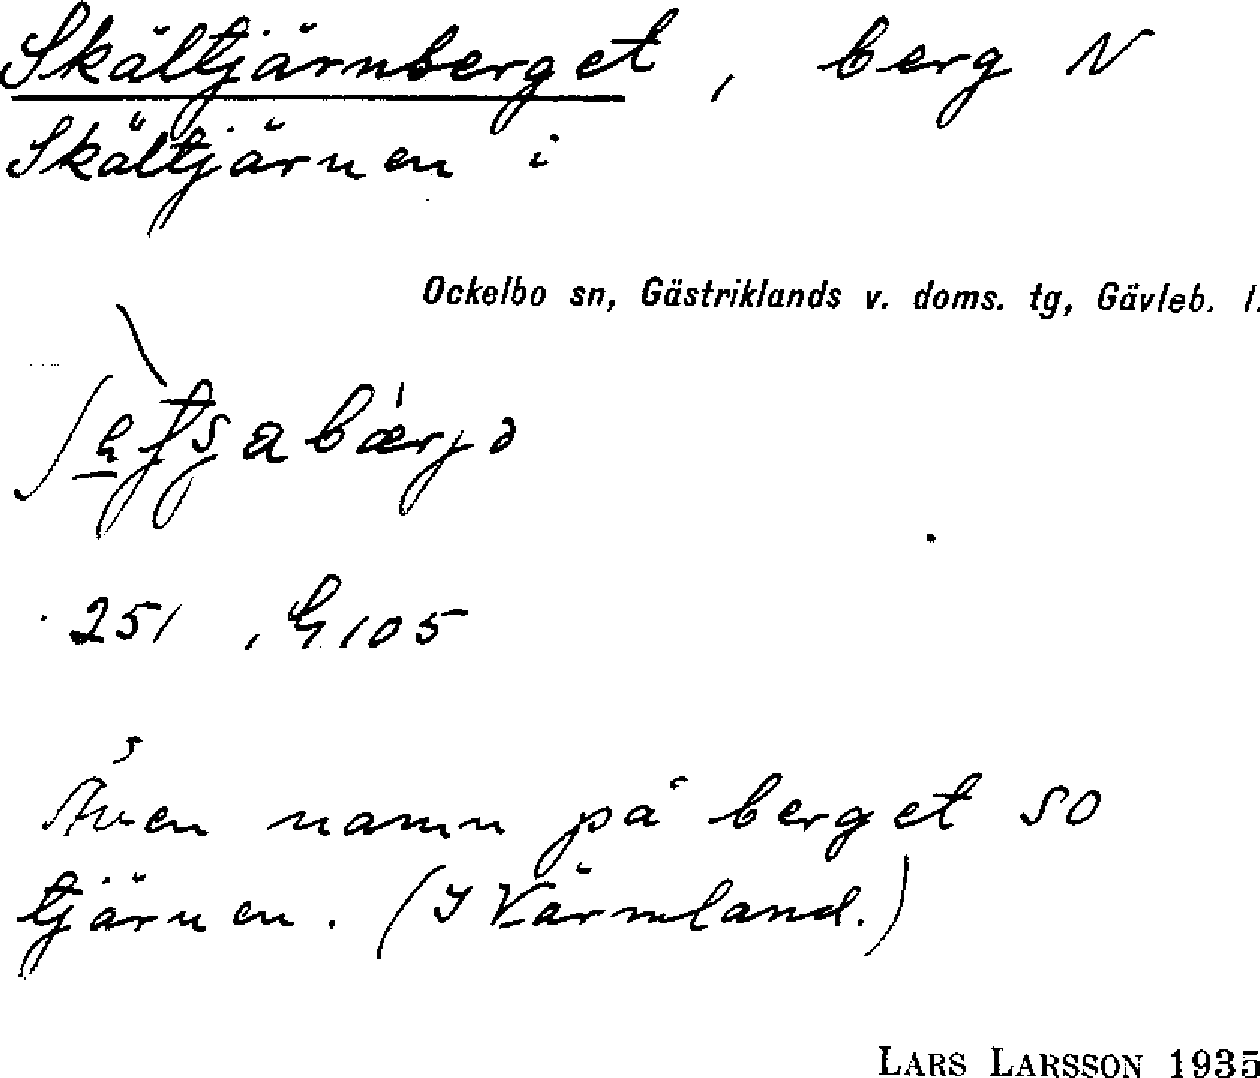 Skältjärnberget, berg N
Skältjärnen i
Ockelbo sn, Gästriklands v. doms. tg, Gävleb. l.
251, G105
Även namn på berget SO
tjärnen. (I Värmland.)
LARS LARSSON 1935